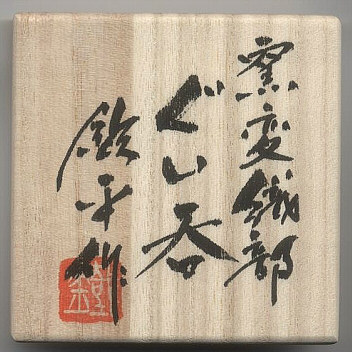 窯変織部
ぐい呑
平作